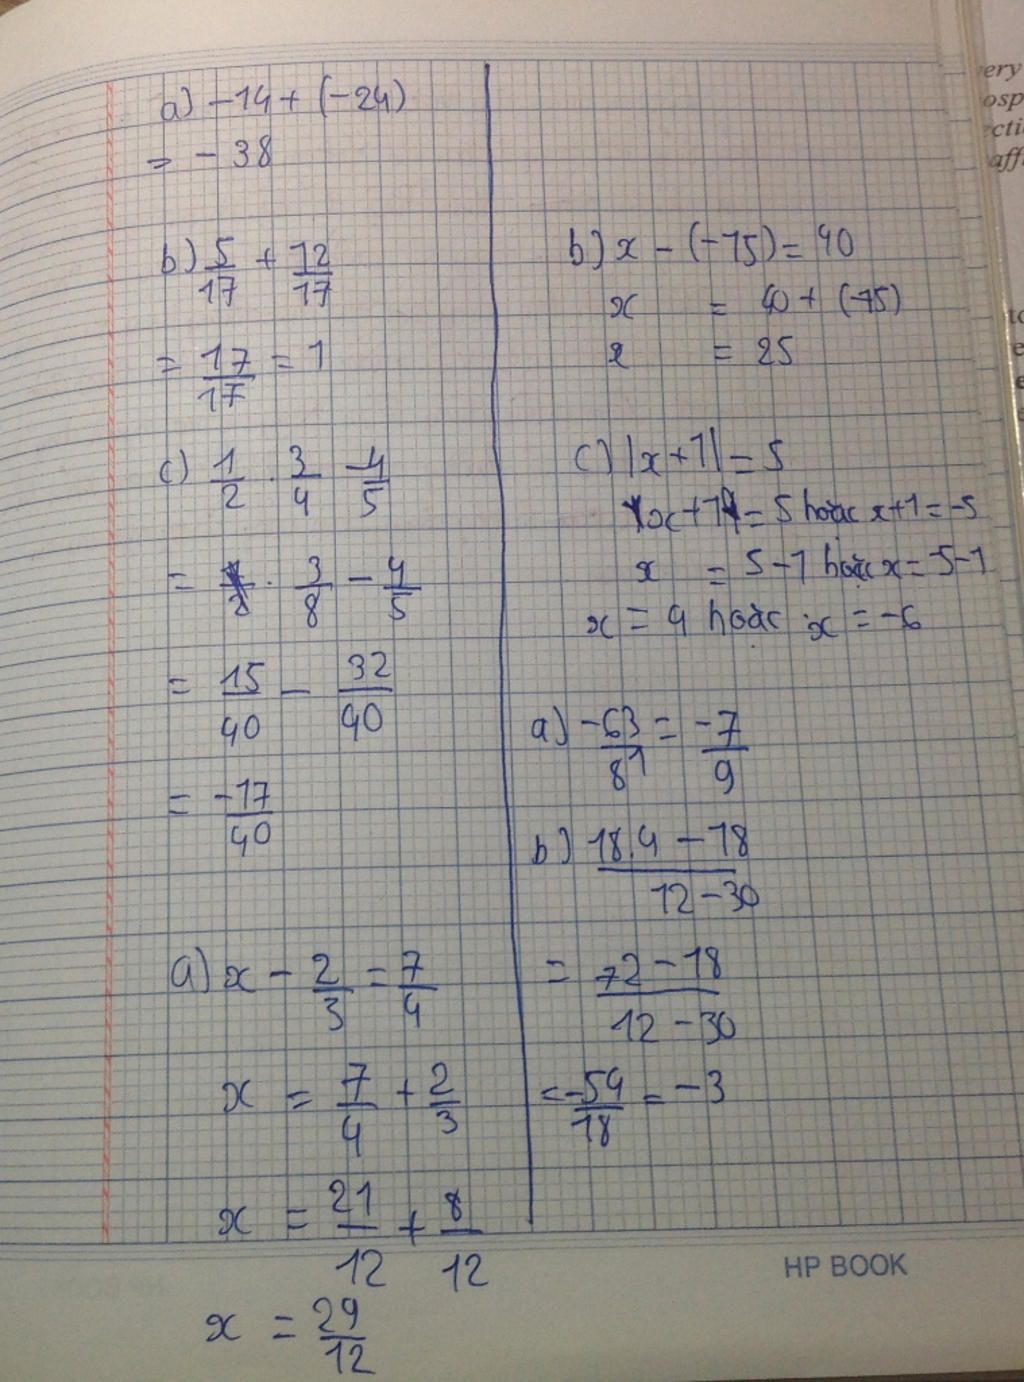 a) -14 + (-24)
= -38
b) 5/17 + 12/17
= 17/17 = 1
c) 1/2 . 3/4 - 4/5
= 3/8 - 4/5
= 15/40 - 32/40
= -17/40
a) x - 2/3 = 7/4
x = 7/4 + 2/3
x = 21/12 + 8/12
x = 29/12
b) x - (-15) = 40
x = 40 + (-15)
x = 25
c) |x+1| = 5
x+1 = 5 hoặc x+1 = -5
x = 5-1 hoặc x = -5-1
x = 4 hoặc x = -6
a) -63/81 = -7/9
b) 18.4 - 18 / 12 - 30
= 72 - 18 / 12 - 30
= -54/18 = -3
HP BOOK